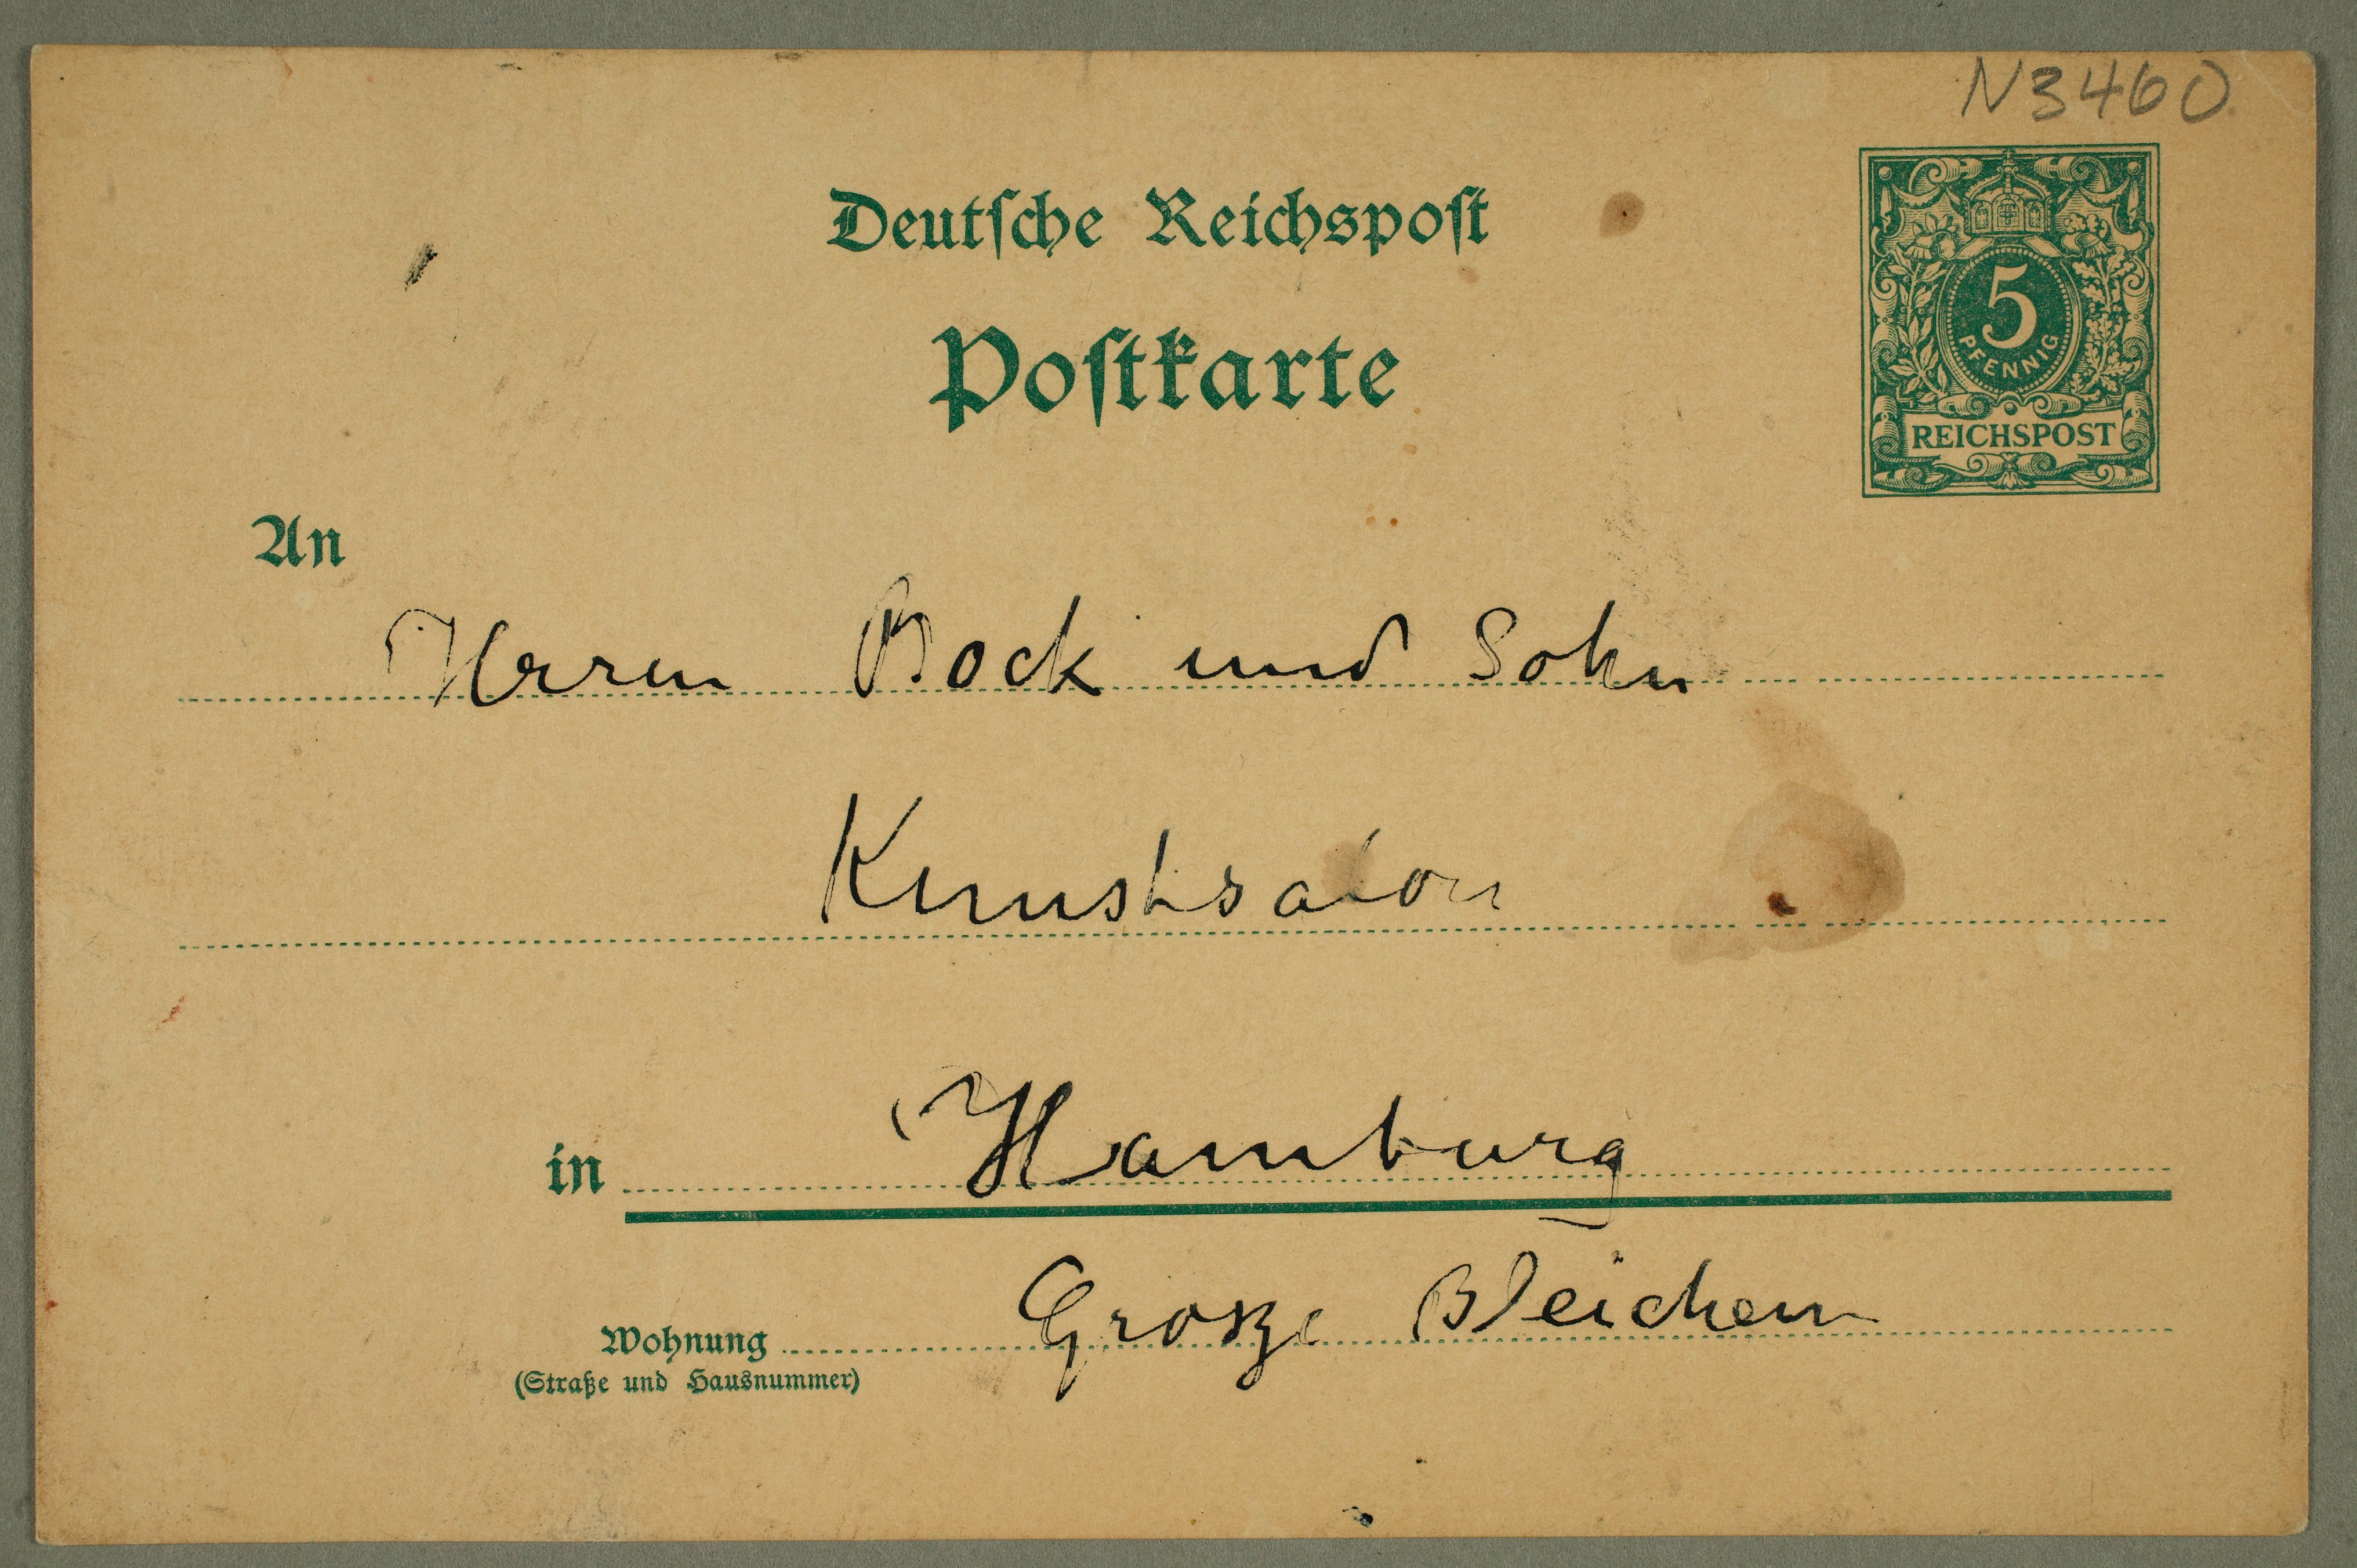 N3460
Deutsche Reichspost
Postkarte
5
PFENNIG
REICHSPOST
An
Herren Bock und Sohn
Kunstsalon
in Hamburg
Wohnung Große Bleichen
(Straße und Hausnummer)